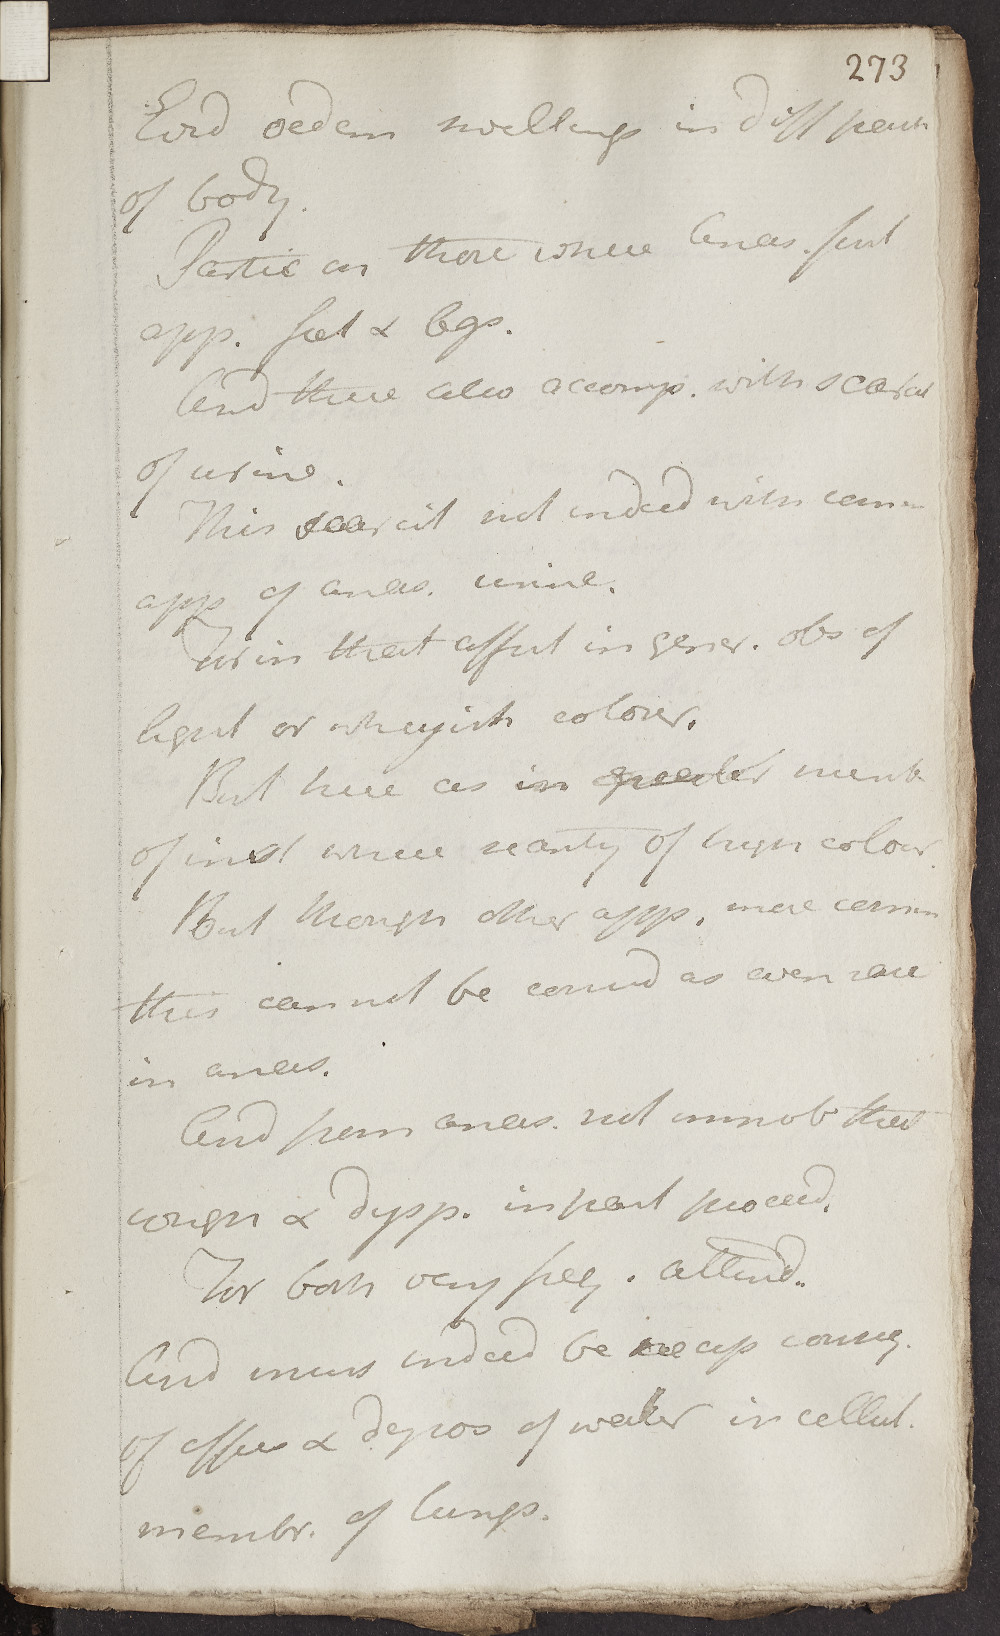 273
Evid oedem swellings in diff parts
of body.
Partic on those where anas. first
app. feet & legs.
And these also accomp. with scarcit
of urine.
This scarcit not indeed with comm
app of anas. urine.
For in that affect in gener. obs of
light or wheyish colour.
But here as in greater numb
of inst where scanty of high colour.
But though other app. more comm
this cannot be consid as even rare
in anas.
And from anas. not improb that
cough & dysp. in part proceed.
For both very freq. attend.
And must indeed be necess conseq.
of effus & depos of water in cellul.
membr. of lungs.